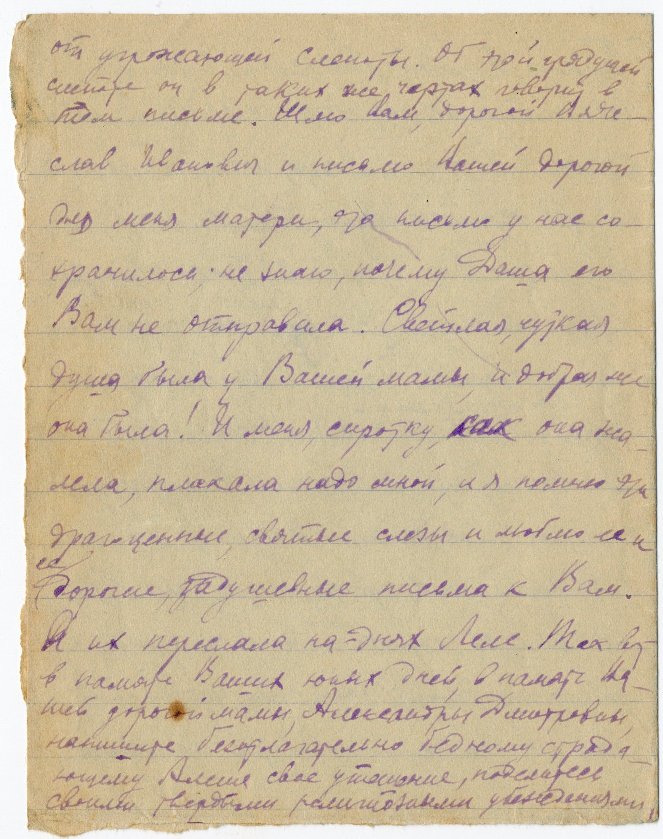 от угрожающей слепоты. Об этой грядущей
слепоте он в таких же чертах говорит в
том письме. Шлю Вам, дорогой Вяче-
слав Иванович и письмо Вашей дорогой
для меня матери, это письмо у нас со-
хранилось; не знаю, почему Даша его
Вам не отправила. Светлая, чуткая
душа была у Вашей мамы, и добрая же
она была! И меня, сиротку, как она жа-
лела, плакала надо мной, и я помню эти
драгоценные, святые слезы и люблю ее и
ее дорогие, задушевные письма к Вам.
Я их переслала на-днях Леле. Так вот
в память Ваших юных дней, в память Ва-
шей дорогой мамы, Александры Дмитровны,
напишите безотлагательно бедному страда-
ющему Алеше свое утешение, поделитесь
своими твердыми религиозными убеждениями.